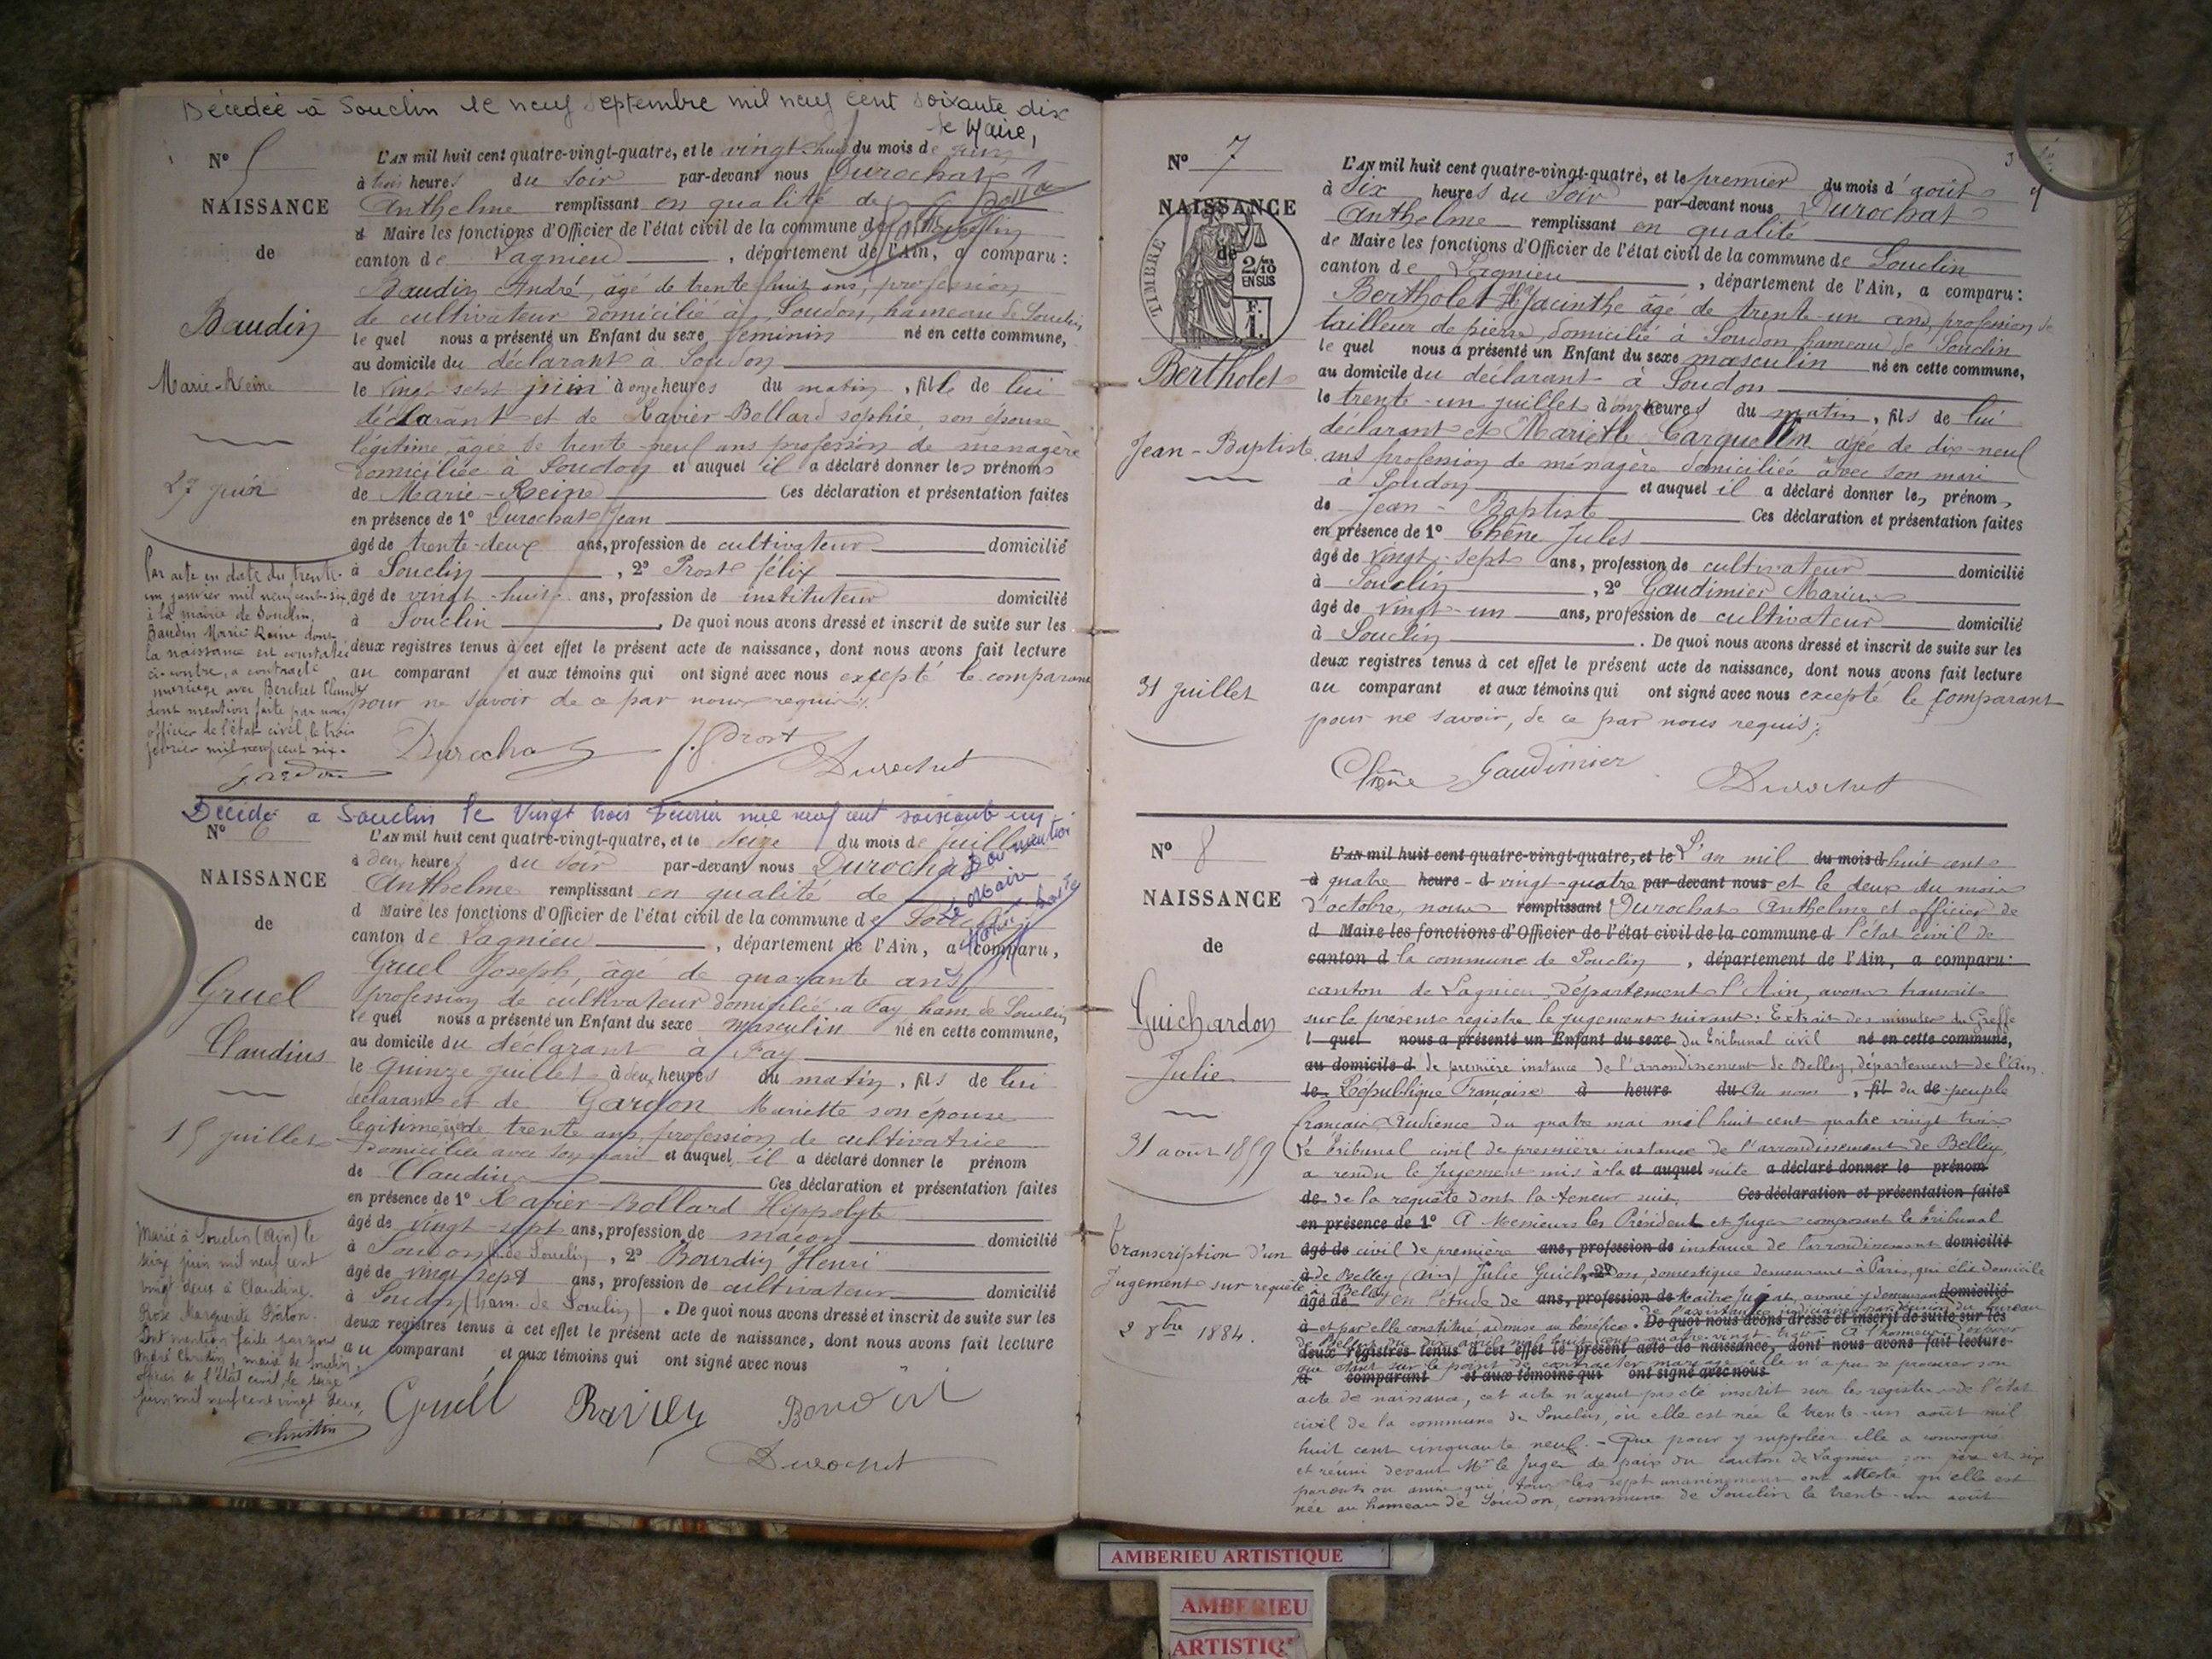 Décédée à Souclin le neuf septembre mil neuf cent soixante dix
le Maire,
N° 5
NAISSANCE
de
Baudin
Marie-Reine
27 juin
Par acte en date du trente-
un janvier mil neuf cent six,
à la mairie de Souclin,
Baudin Marie Reine dont
la naissance est constatée
ci-contre, a contracté
mariage avec Berthet Claude
dont mention faite par nous
officier de l'état civil, le trois
février mil neuf cent six.
L'AN mil huit cent quatre-vingt-quatre, et le vingt-huit du mois de juin
à trois heures du soir par-devant nous Durochat
Anthelme remplissant en qualité de
d Maire les fonctions d'Officier de l'état civil de la commune de Souclin
canton de Lagnieu, département de l'Ain, a comparu :
Baudin André, âgé de trente huit ans, profession
de cultivateur domicilié à Soudon, hameau de Souclin
le quel nous a présenté un Enfant du sexe féminin né en cette commune,
au domicile du déclarant à Soudon
le vingt sept juin à onze heures du matin, fille de lui
déclarant et de Ravier-Bollard sophie, son épouse
légitime, âgée de trente-neuf ans profession de menagère
domiciliée à Soudon et auquel il a déclaré donner les prénoms
de Marie-Reine Ces déclaration et présentation faites
en présence de 1° Durochat Jean
âgé de trente-deux ans, profession de cultivateur domicilié
à Souclin, 2° Prost félix
âgé de vingt-huit ans, profession de instituteur domicilié
à Souclin. De quoi nous avons dressé et inscrit de suite sur les
deux registres tenus à cet effet le présent acte de naissance, dont nous avons fait lecture
au comparant et aux témoins qui ont signé avec nous excepté le comparant
pour ne savoir de ce par nous requis.
Durochat f. Prost
Durochat
Décédé a Souclin le Vingt trois Février mil neuf cent soixante un
N° 6
NAISSANCE
de
Gruel
Claudius
15 juillet
Marié à Souclin (Ain) le
seize juin mil neuf cent
vingt deux à Claudine
Rose Marguerite
Dont mention faite par nous
André Christin, maire de Souclin,
officier de l'état civil, le seize
juin mil neuf cent vingt deux,
Christin
L'AN mil huit cent quatre-vingt-quatre, et le seize du mois de juillet
à deux heures du soir par-devant nous Durochat
Anthelme remplissant en qualité de
d Maire les fonctions d'Officier de l'état civil de la commune de Souclin
canton de Lagnieu, département de l'Ain, a comparu,
Gruel Joseph, âgé de quarante ans,
profession de cultivateur domicilié a Fay ham. de Souclin
le quel nous a présenté un Enfant du sexe masculin né en cette commune,
au domicile du déclarant à Fay
le quinze juillet à deux heures du matin, fils de lui
déclarant et de Gardon Mariette son épouse
légitime, âgée de trente ans, profession de cultivatrice
domiciliée avec son mari et auquel il a déclaré donner le prénom
de Claudius Ces déclaration et présentation faites
en présence de 1° Ravier-Bollard Hippolyte
âgé de vingt-sept ans, profession de maçon domicilié
à Soudon h. de Souclin, 2° Bourdin Henri
âgé de vingt sept ans, profession de cultivateur domicilié
à Soudon (ham. de Souclin). De quoi nous avons dressé et inscrit de suite sur les
deux registres tenus à cet effet le présent acte de naissance, dont nous avons fait lecture
au comparant et aux témoins qui ont signé avec nous
Gruel Ravier
Durochat
N° 7
NAISSANCE
de
TIMBRE
2/10
EN SUS
F.
1.
Bertholet
Jean-Baptiste
31 juillet
L'AN mil huit cent quatre-vingt-quatre, et le premier du mois d'août
à Six heures du Soir par-devant nous Durochat
Anthelme remplissant en qualité
de Maire les fonctions d'Officier de l'état civil de la commune de Souclin
canton de Lagnieu, département de l'Ain, a comparu :
Bertholet Hyacinthe âgé de trente-un ans, profession de
tailleur de pierre, domicilié à Soudon hameau de Souclin
le quel nous a présenté un Enfant du sexe masculin né en cette commune,
au domicile du déclarant à Soudon
le trente-un juillet à onze heures du matin, fils de lui
déclarant et Mariette Carquellin agée de dix-neuf
ans profession de ménagère domiciliée avec son mari
à Soudon et auquel il a déclaré donner les prénoms
de Jean-Baptiste Ces déclaration et présentation faites
en présence de 1° Chêne Jules
âgé de vingt-sept ans, profession de cultivateur domicilié
à Souclin, 2° Gaudimier Marius
âgé de vingt-un ans, profession de cultivateur domicilié
à Souclin. De quoi nous avons dressé et inscrit de suite sur les
deux registres tenus à cet effet le présent acte de naissance, dont nous avons fait lecture
au comparant et aux témoins qui ont signé avec nous excepté le comparant
pour ne savoir, de ce par nous requis;
Chêne Gaudimier Durochat
N° 8
NAISSANCE
de
Guichardon
Julie
31 août 1859
Transcription d'un
Jugement sur requête
2 8bre 1884.
L'AN mil huit cent quatre-vingt-quatre, et le L'an mil du mois d huit cent
à quatre heure d vingt-quatre par-devant nous et le deux du mois
d'octobre, nous remplissant Durochat Anthelme et officier de
d Maire les fonctions d'Officier de l'état civil de la commune d l'état civil de
canton d la commune de Souclin, département de l'Ain, a comparu :
canton de Lagnieu, département l'Ain, avons transcrit
sur le présent registre le jugement suivant : Extrait des minutes du Greffe
l quel nous a présenté un Enfant du sexe du tribunal civil né en cette commune,
au domicile d de première instance de l'arrondissement de Belley, département de l'Ain.
le République Française à heure du Au nom, fil du de peuple
français, Audience du quatre mai mil huit cent quatre vingt trois
Le tribunal civil de première instance de l'arrondissement de Belley,
a rendu le Jugement mis à la et auquel suite a déclaré donner le prénom
de de la requête dont la teneur suit Ces déclaration et présentation faites
en présence de 1° A Messieurs les Président et Juges composant le tribunal
âgé de civil de première ans, profession de instance de l'arrondissement domicilié
à de Belley (Ain) Julie Guichardon, domestique demeurant à Paris, qui élit domicile
à Belley
âgé de en l'étude de ans, profession de maître avoué y demeurant domicilié
de l'assistance judiciaire par décision du bureau
à et par elle constitué, admise au bénéfice. De quoi nous avons dressé et inscrit de suite sur les
deux registres tenus à cet effet le présent acte de naissance, dont nous avons fait lecture
que étant sur le point de contracter mariage elle n'a pu se procurer son
a comparant et aux témoins qui ont signé avec nous
acte de naissance, cet acte n'ayant pas été inscrit sur les registres de l'état
civil de la commune de Souclin, où elle est née le trente-un août mil
huit cent cinquante neuf. - Que pour y suppléer elle a convoqué
et réuni devant Mr le Juge de paix du canton de Lagnieu son père et six
parents ou amis qui, tous les sept unanimement ont attesté qu'elle est
née au hameau de Soudon, commune de Souclin le trente-un août
AMBERIEU ARTISTIQUE
AMBERIEU
ARTISTIQ